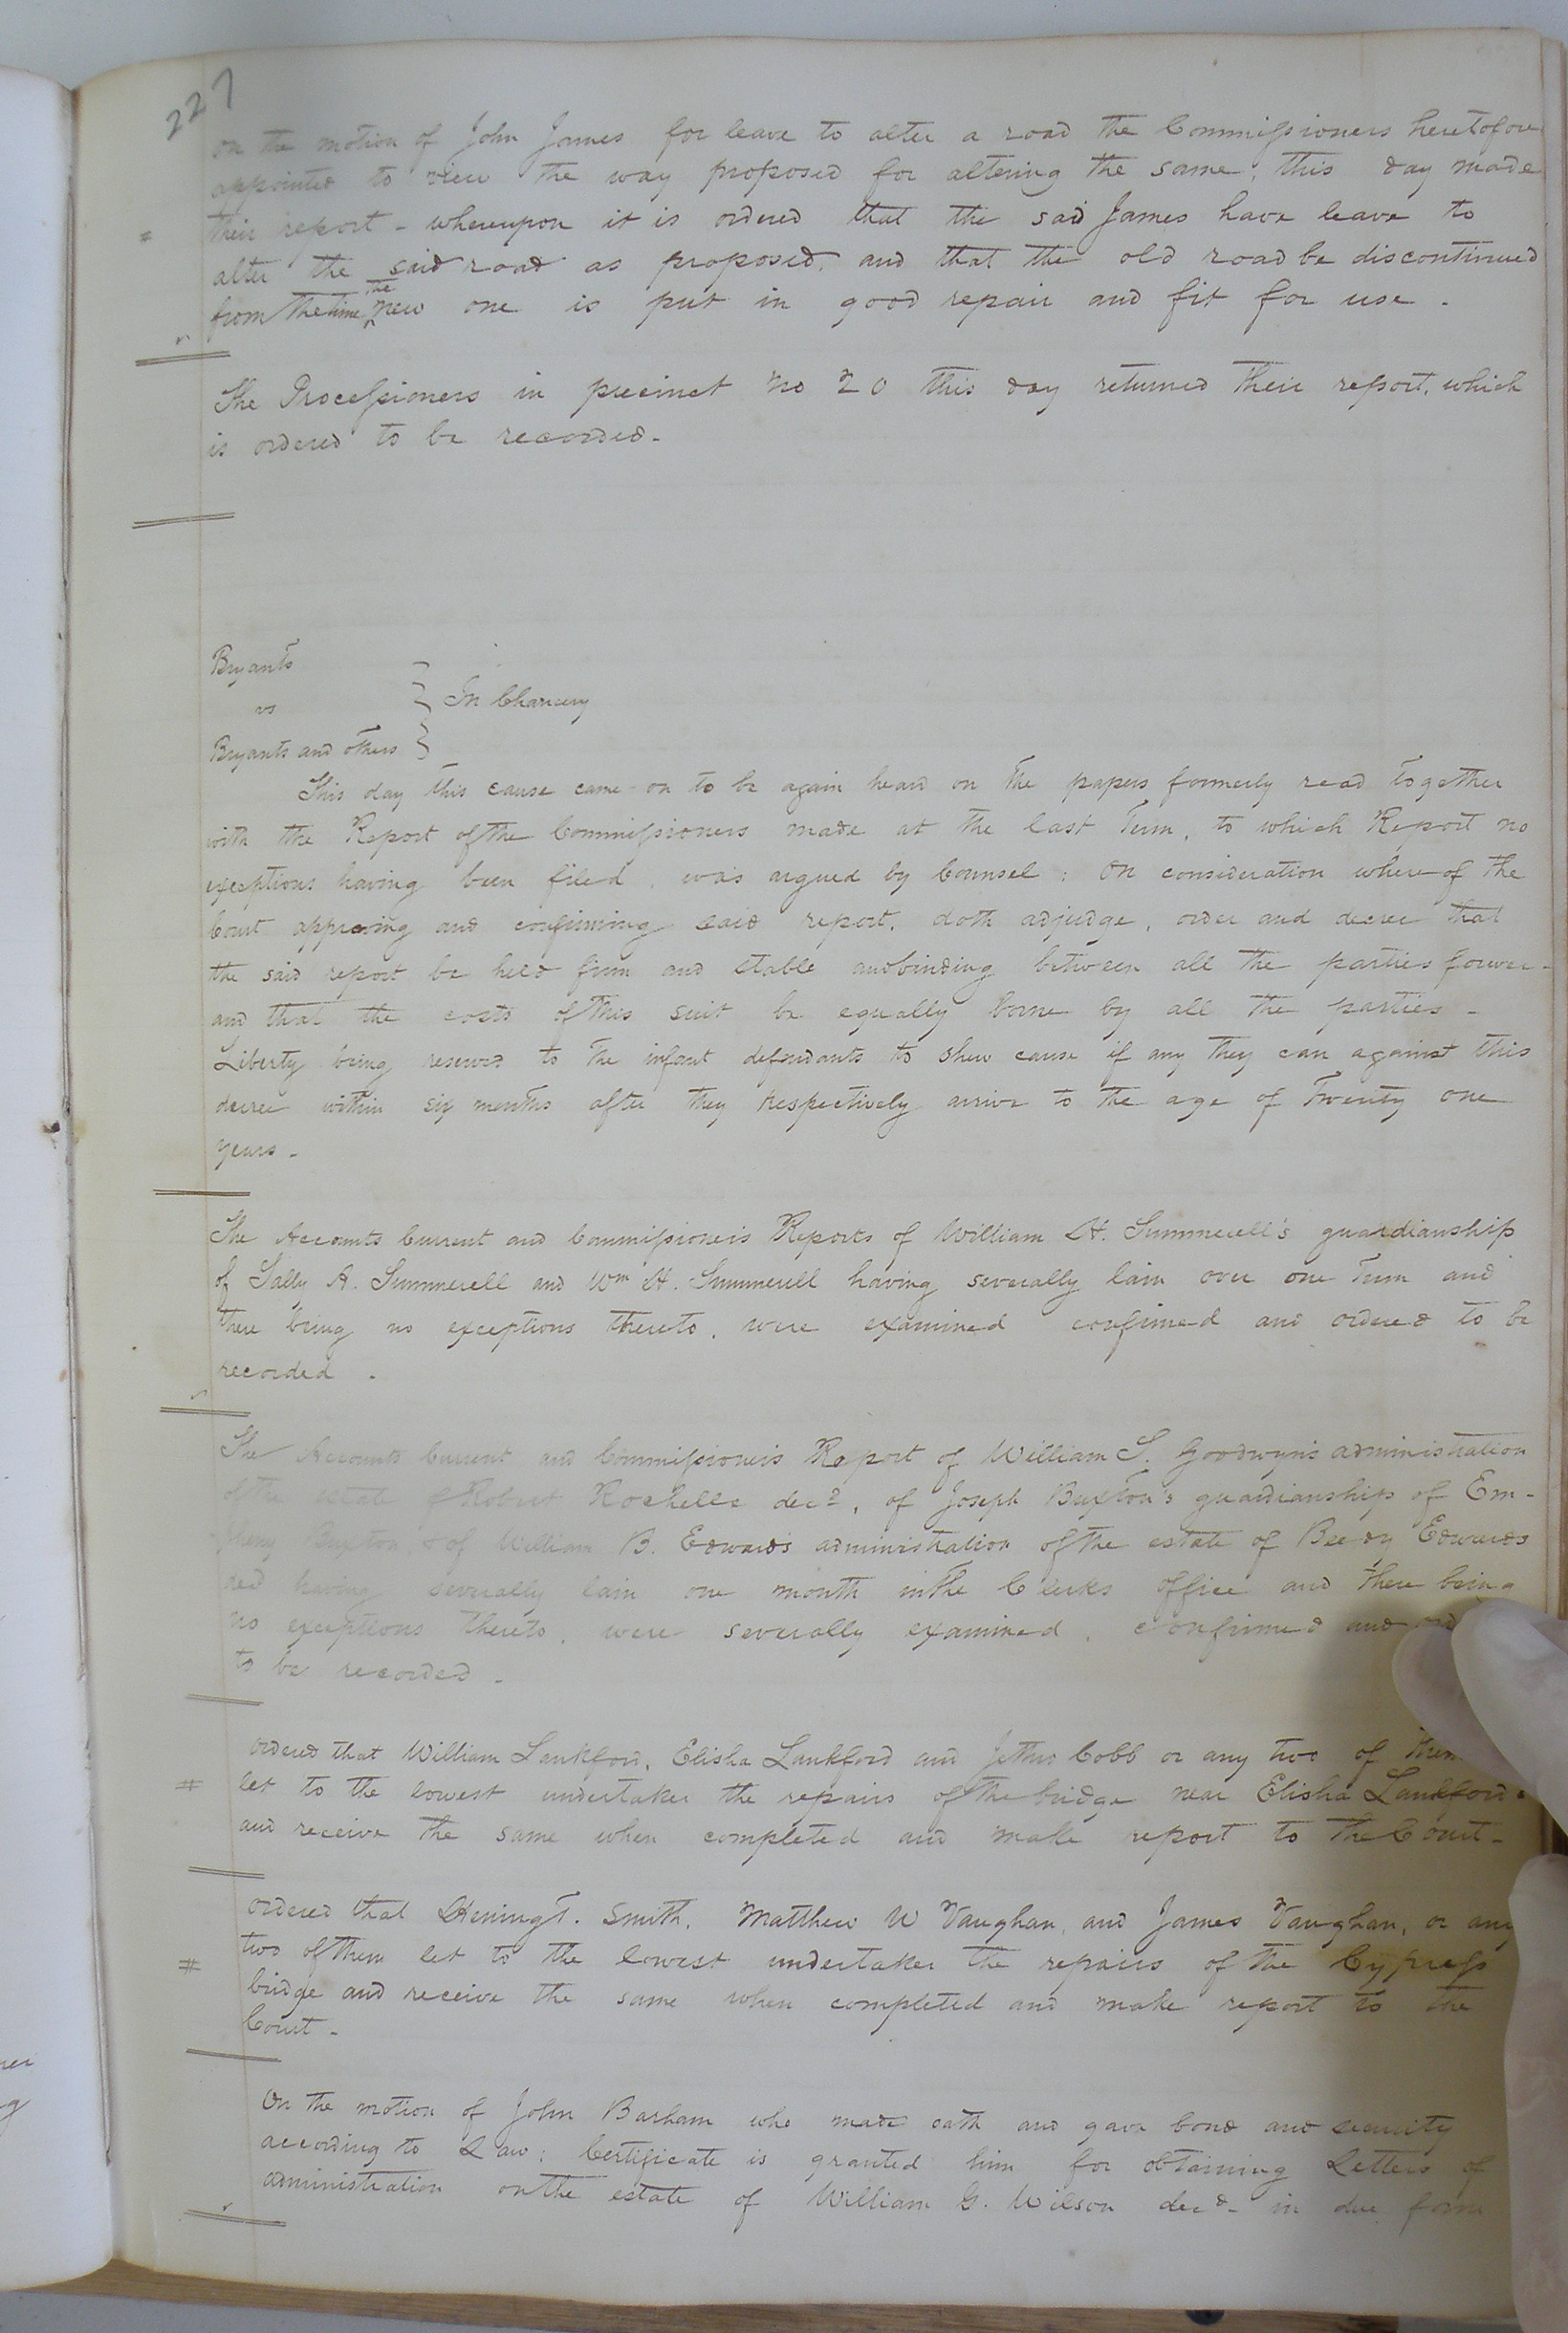 227
On the motion of John James for leave to alter a road the Commissioners heretofore
appointed to view the way proposed for altering the same, this day made
their report - whereupon it is ordered that the said James have leave to
alter the said road as proposed, and that the old road be discontinued
from the time the new one is put in good repair and fit for use -
The Processioners in precinct No 20 this day returned their report, which
is ordered to be recorded -
Bryants
vs
In Chancery
Bryants and others
This day this cause came on to be again heard on the papers formerly read together
with the Report of the Commissioners made at the last Term, to which Report no
exceptions having been filed, was argued by Counsel: On consideration whereof the
Court approving and confirming said report, doth adjudge, order and decree that
the said report be held firm and stable and binding between all the parties forever -
and that the costs of this suit be equally borne by all the parties -
Liberty being reserved to the infant defendants to shew cause if any they can against this
decree within six months after they respectively arrive to the age of Twenty one
years -
The Accounts Current and Commissioners Reports of William H. Summerell's guardianship
of Sally A. Summerell and Wm H. Summerell having severally lain over one Term and
there being no exceptions thereto, were examined confirmed and ordered to be
recorded -
The Accounts Current and Commissioners Report of William S. Goodwyn's administration
of the estate of Robert Rochelle decd, of Joseph Buxton's guardianship of Em-
Buxton & of William B. Edwards administration of the estate of Beedy Edwards
having severally lain one month in the Clerks office and there being
no exceptions thereto, were severally examined, confirmed and
to be recorded -
ordered that William Lankford, Elisha Lankford and Jethro Cobb or any two of them
let to the lowest undertaker the repairs of the bridge near Elisha Lankfords
and receive the same when completed and make report to the Court -
ordered that T. Smith, Matthew W Vaughan, and James Vaughan, or any
two of them let to the lowest undertaker the repairs of the Cypress
bridge and receive the same when completed and make report to the
Court -
On the motion of John Barham who made oath and gave bond and security
according to Law: Certificate is granted him for obtaining Letters of
administration on the estate of William G. Wilson decd - in due form